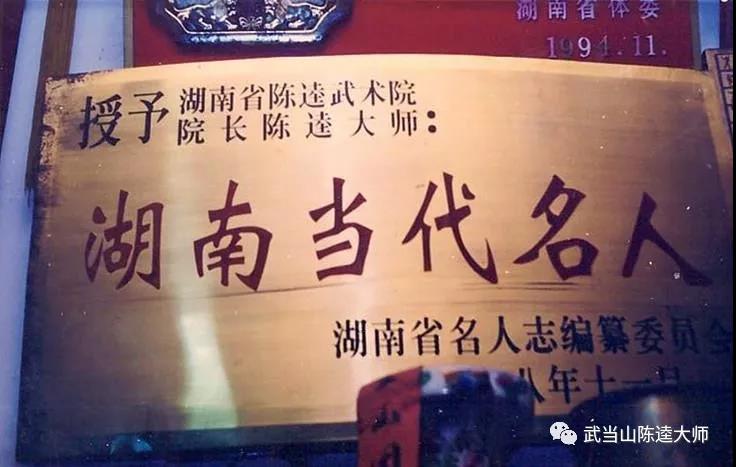 湖南省体委
1994.11.
授予 湖南省陈逵武术院
院长陈逵大师：
湖南当代名人
湖南省名人志编纂委员会
八年十一月
武当山陈逵大师